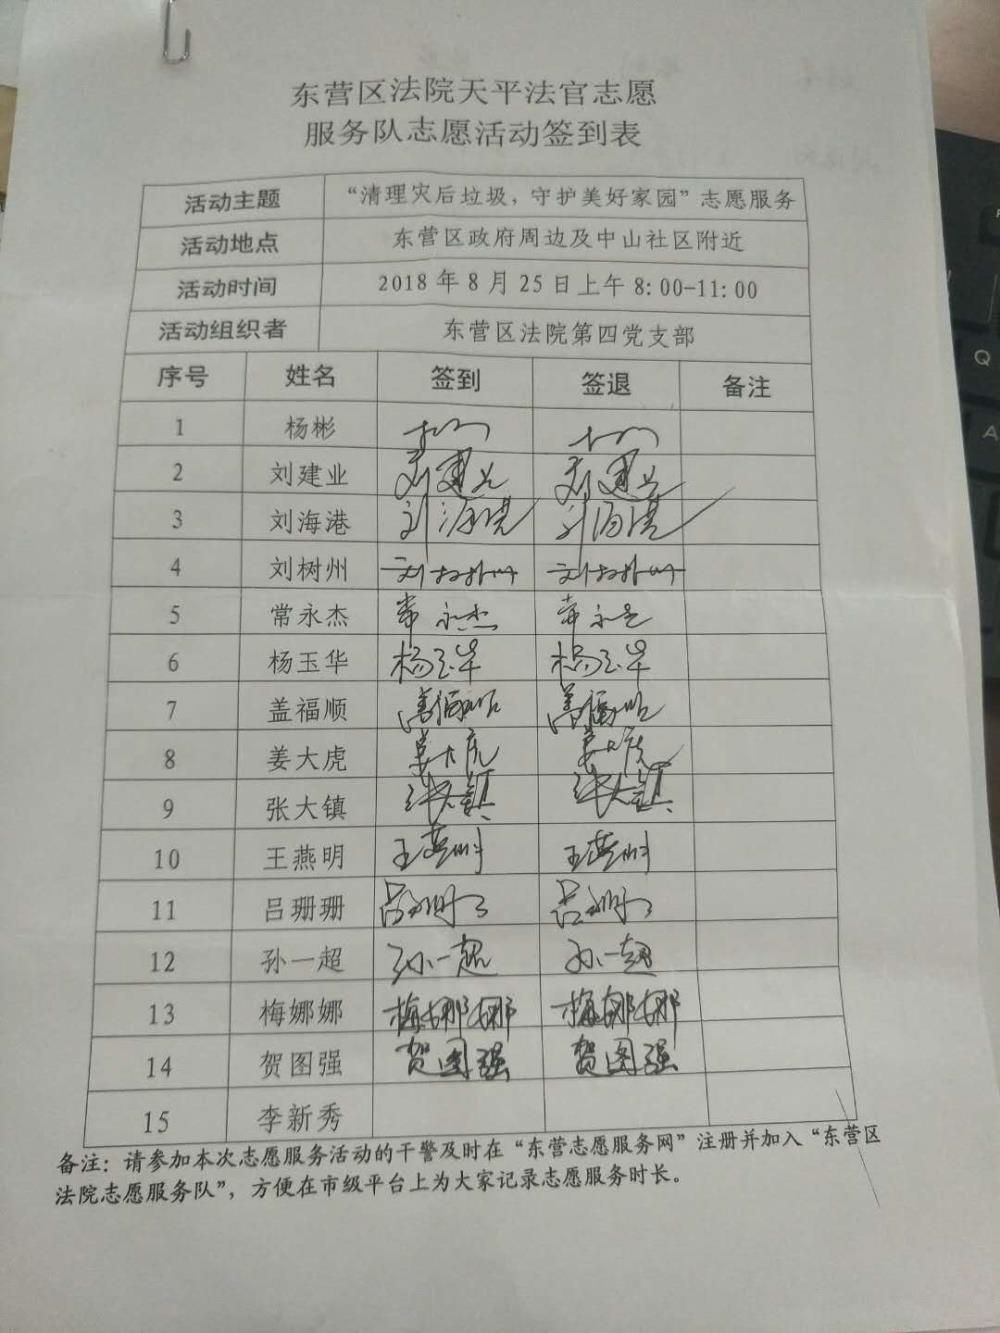 东营区法院天平法官志愿
服务队志愿活动签到表
活动主题 “清理灾后垃圾，守护美好家园”志愿服务
活动地点 东营区政府周边及中山社区附近
活动时间 2018年8月25日上午8:00-11:00
活动组织者 东营区法院第四党支部
序号 姓名 签到 签退 备注
1 杨彬 杨 杨
2 刘建业 刘建业 刘建业
3 刘海港 刘海港 刘海港
4 刘树州 刘树州 刘树州
5 常永杰 常永杰 常永杰
6 杨玉华 杨玉华 杨玉华
7 盖福顺 盖福顺 盖福顺
8 姜大虎 姜大虎 姜大虎
9 张大镇 张大镇 张大镇
10 王燕明 王燕明 王燕明
11 吕珊珊 吕珊珊 吕珊珊
12 孙一超 孙一超 孙一超
13 梅娜娜 梅娜娜 梅娜娜
14 贺图强 贺图强 贺图强
15 李新秀
备注：请参加本次志愿服务活动的干警及时在“东营志愿服务网”注册并加入“东营区
法院志愿服务队”，方便在市级平台上为大家记录志愿服务时长。
Q
A